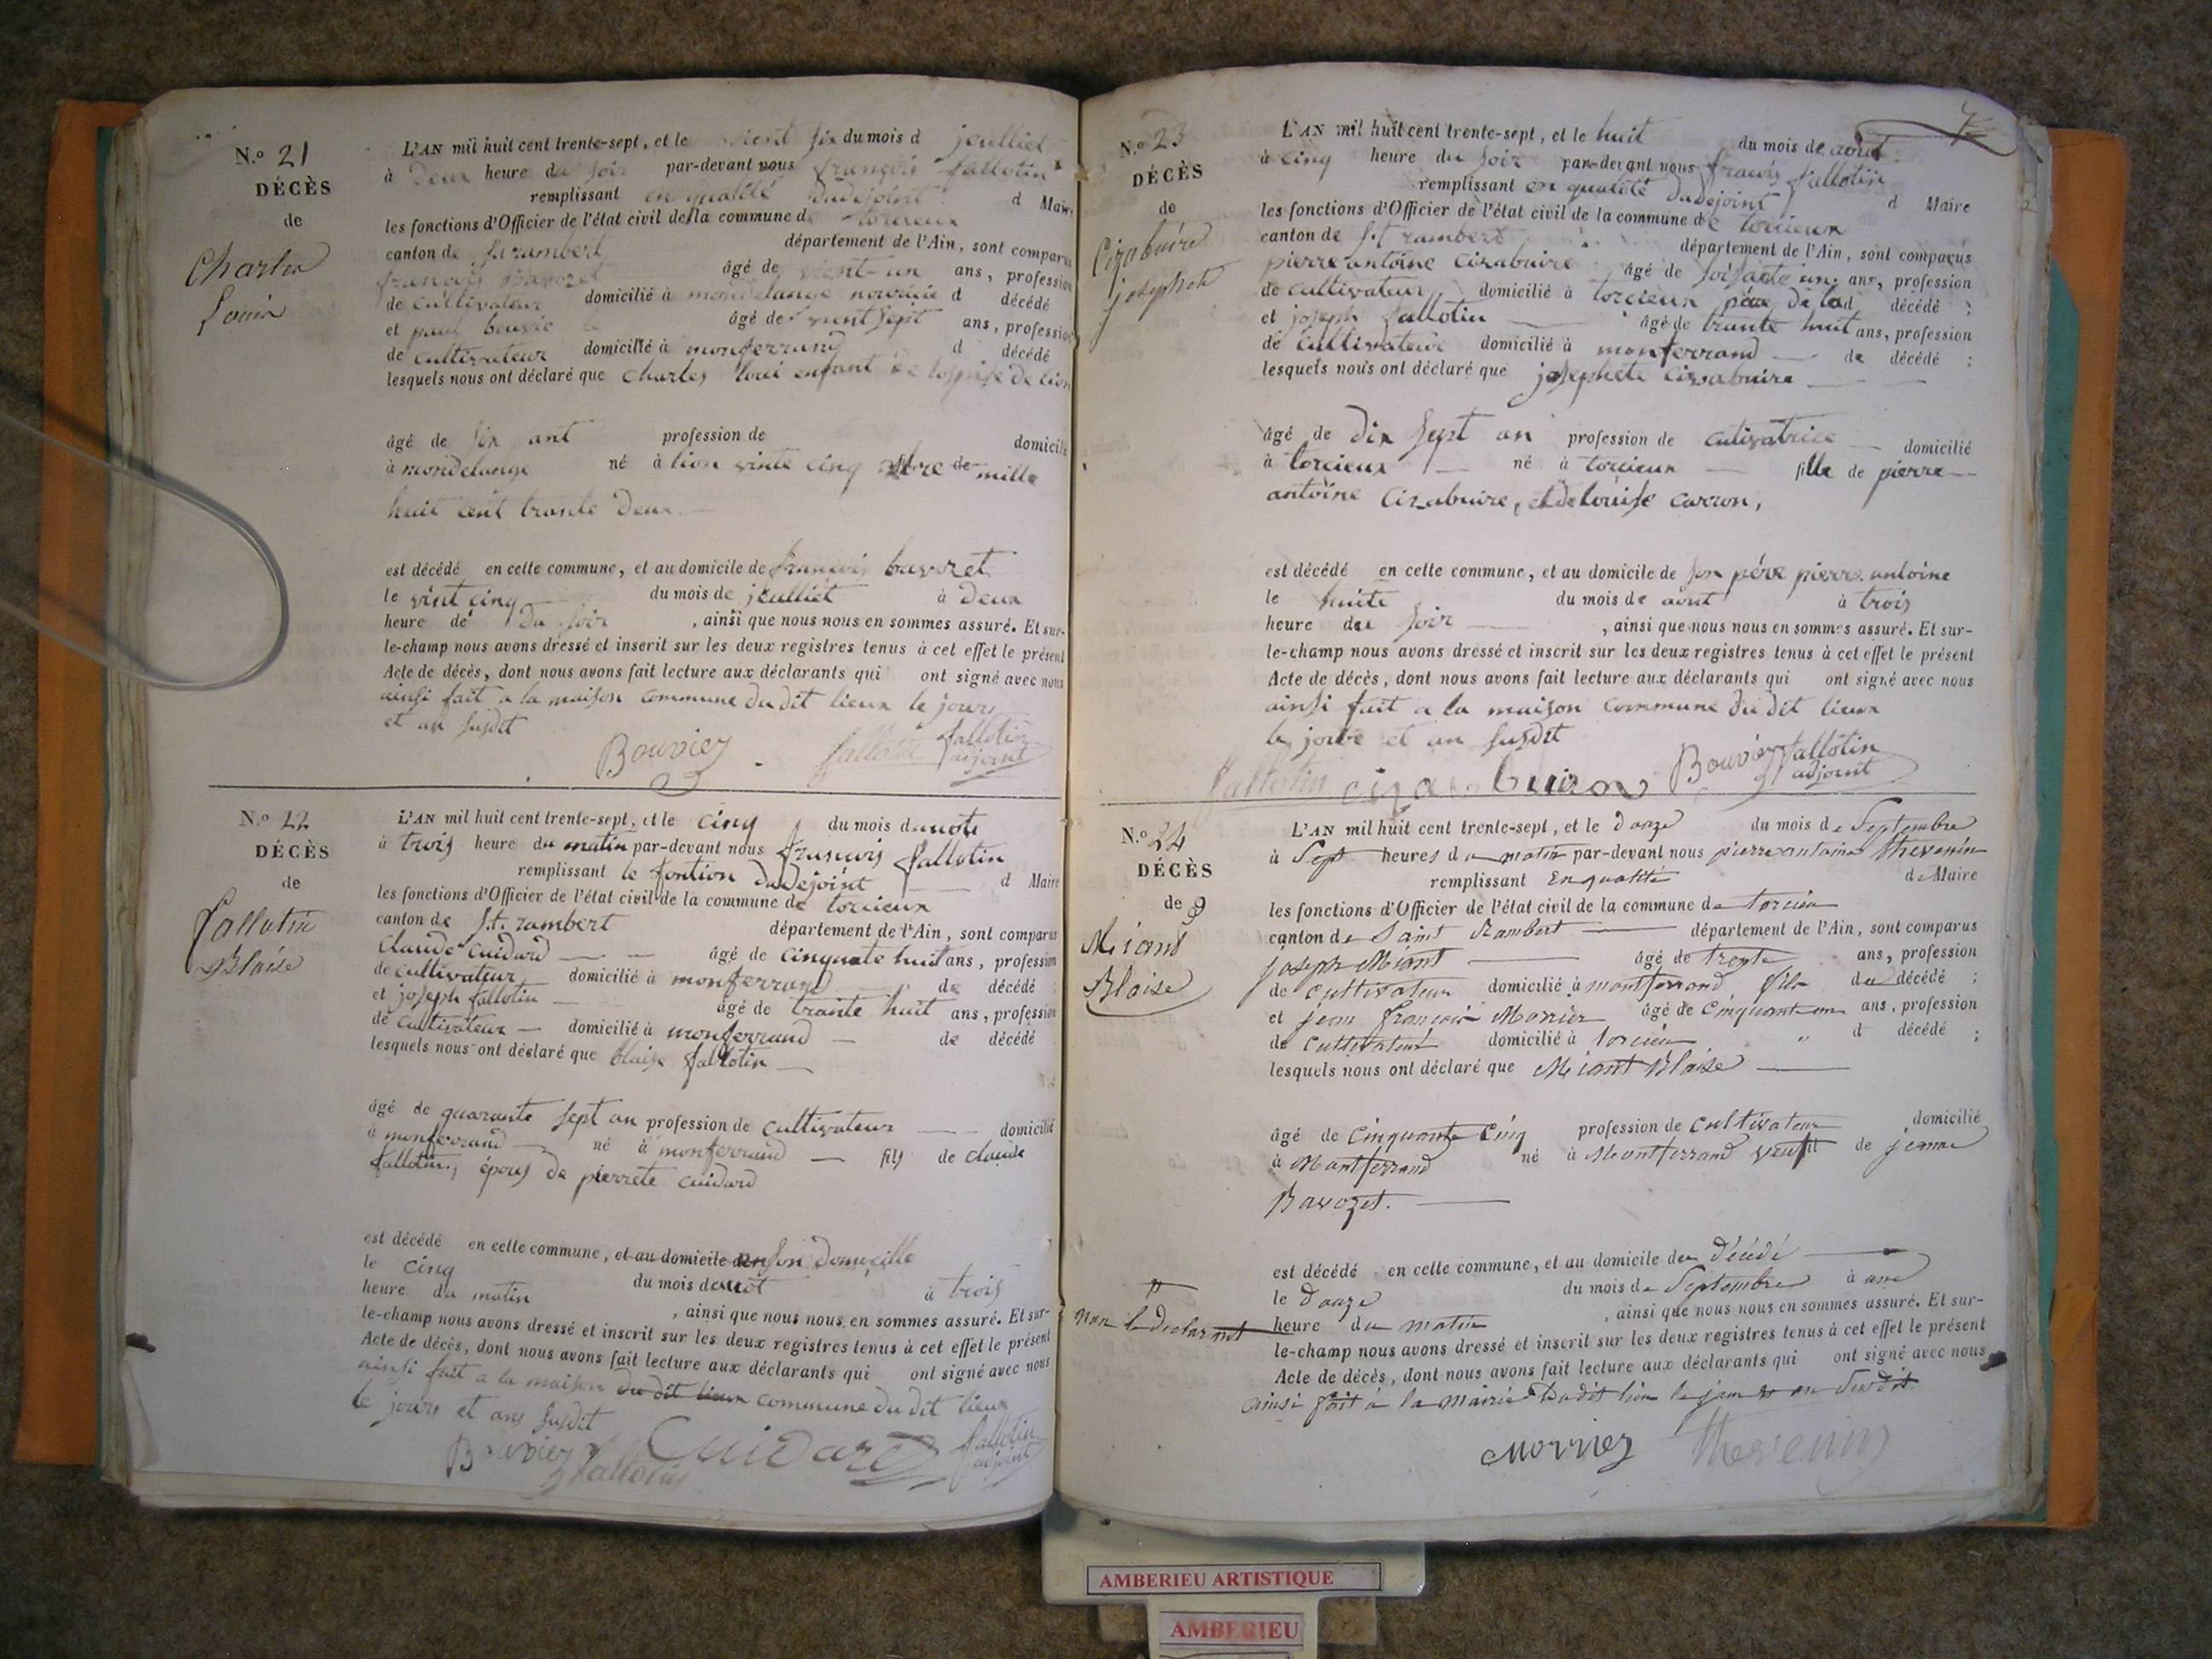 N.o 21
DÉCÈS
de
Charles
Louis
L'AN mil huit cent trente-sept, et le vient six du mois d jeulliet
à deux heure du soir par-devant nous françois fallotin
remplissant en qualité dadejoint d Maire
les fonctions d'Officier de l'état civil de la commune de torcieux
canton de st rambert département de l'Ain, sont comparus
françois bavozet âgé de vient-un ans, profession
de cultivateur domicilié à mondelange d décédé
et paul bouvié âgé de vient sept ans, profession
de cultivateur domicilié à monferrand d décédé
lesquels nous ont déclaré que charles loui enfant de lospise de lion
âgé de six ant profession de domicilié
à mondelange né à lion vinte cinq de mille
huit cent trante deux
est décédé en cette commune, et au domicile de francois bavozet
le vint cinq du mois de jeulliet à deux
heure de du soir , ainsi que nous nous en sommes assuré. Et sur-
le-champ nous avons dressé et inscrit sur les deux registres tenus à cet effet le présent
Acte de décès, dont nous avons fait lecture aux déclarants qui ont signé avec nous
ainsi fait a la maison commune du dit lieux le jours
et an susdit
Bouvier fallotin fallotin
adjoint
N.o 22
DÉCÈS
de
fallotin
Blaise
L'AN mil huit cent trente-sept, et le cinq du mois d auote
à trois heure du matin par-devant nous françois fallotin
remplissant le fontion dadejoint d Maire
les fonctions d'Officier de l'état civil de la commune de torcieux
canton de s.t. rambert département de l'Ain, sont comparus
Claude cuidard âgé de cinquate huit ans, profession
de cultivateur domicilié à monferrand de décédé
et joseph fallotin âgé de trante huit ans, profession
de cultivateur domicilié à monferrand de décédé
lesquels nous ont déclaré que blaise fallotin
âgé de quarante sept an profession de cultivateur domicilié
à monferrand né à monferrand fils de claude
fallotin, épous de pierrete cuidard
est décédé en cette commune, et au domicile de son domicille
le cinq du mois d auot à trois
heure du matin , ainsi que nous nous en sommes assuré. Et sur-
le-champ nous avons dressé et inscrit sur les deux registres tenus à cet effet le présent
Acte de décès, dont nous avons fait lecture aux déclarants qui ont signé avec nous
ainsi fait a la maison du dit lieux commune du dit lieux
le jours et ans susdit
Bouvier fallotin Cuidard fallotin
adjoint
N.o 23
DÉCÈS
de
Cizabuire
josephete
L'AN mil huit cent trente-sept, et le huit du mois de aout
à cinq heure du soir par-devant nous françois fallotin
remplissant en qualité dadejoint d Maire
les fonctions d'Officier de l'état civil de la commune de torcieux
canton de s.t rambert département de l'Ain, sont comparus
pierre antoine cizabuire âgé de soisante un ans, profession
de cultivateur domicilié à torcieux père de lad décédé ;
et joseph fallotin âgé de trante huit ans, profession
de cultivateur domicilié à monferrand de décédé ;
lesquels nous ont déclaré que josephete cizabuire
âgé de dix sept an profession de cutivatrice domicilié
à torcieux né à torcieux fille de pierre
antoine cizabuire, et de louise carron,
est décédé en cette commune, et au domicile de son père pierre antoine
le huite du mois de aout à trois
heure du soir , ainsi que nous nous en sommes assuré. Et sur-
le-champ nous avons dressé et inscrit sur les deux registres tenus à cet effet le présent
Acte de décès, dont nous avons fait lecture aux déclarants qui ont signé avec nous
ainsi fait a la maison commune du dit lieux
le et an susdit
fallotin Bouvier fallotin
adjoint
N.o 24
DÉCÈS
de
Miand
Blaise
L'AN mil huit cent trente-sept, et le douze du mois de Septembre
à Sept heures du matin par-devant nous pierre antoine thevenin
remplissant En qualité de Maire
les fonctions d'Officier de l'état civil de la commune de torcieu
canton de Saint Rambert département de l'Ain, sont comparus
joseph Miant âgé de trente ans, profession
de cultivateur domicilié à montferrand fils du décédé ;
et jean françois Morrier âgé de cinquante un ans, profession
de cultivateur domicilié à torcieu " d décédé ;
lesquels nous ont déclaré que Miant Blaise
âgé de cinquante cinq profession de cultivateur domicilié
à Montferrand né à Montferrand veuf de jeanne
Bavozet.
est décédé en cette commune, et au domicile du décédé
le douze du mois de Septembre à une
heure du matin , ainsi que nous nous en sommes assuré. Et sur-
le-champ nous avons dressé et inscrit sur les deux registres tenus à cet effet le présent
Acte de décès, dont nous avons fait lecture aux déclarants qui ont signé avec nous
ainsi fait à la mairie Dudit lieu le jour et an Susdit.
Morrier thevenin
AMBERIEU ARTISTIQUE
AMBERIEU